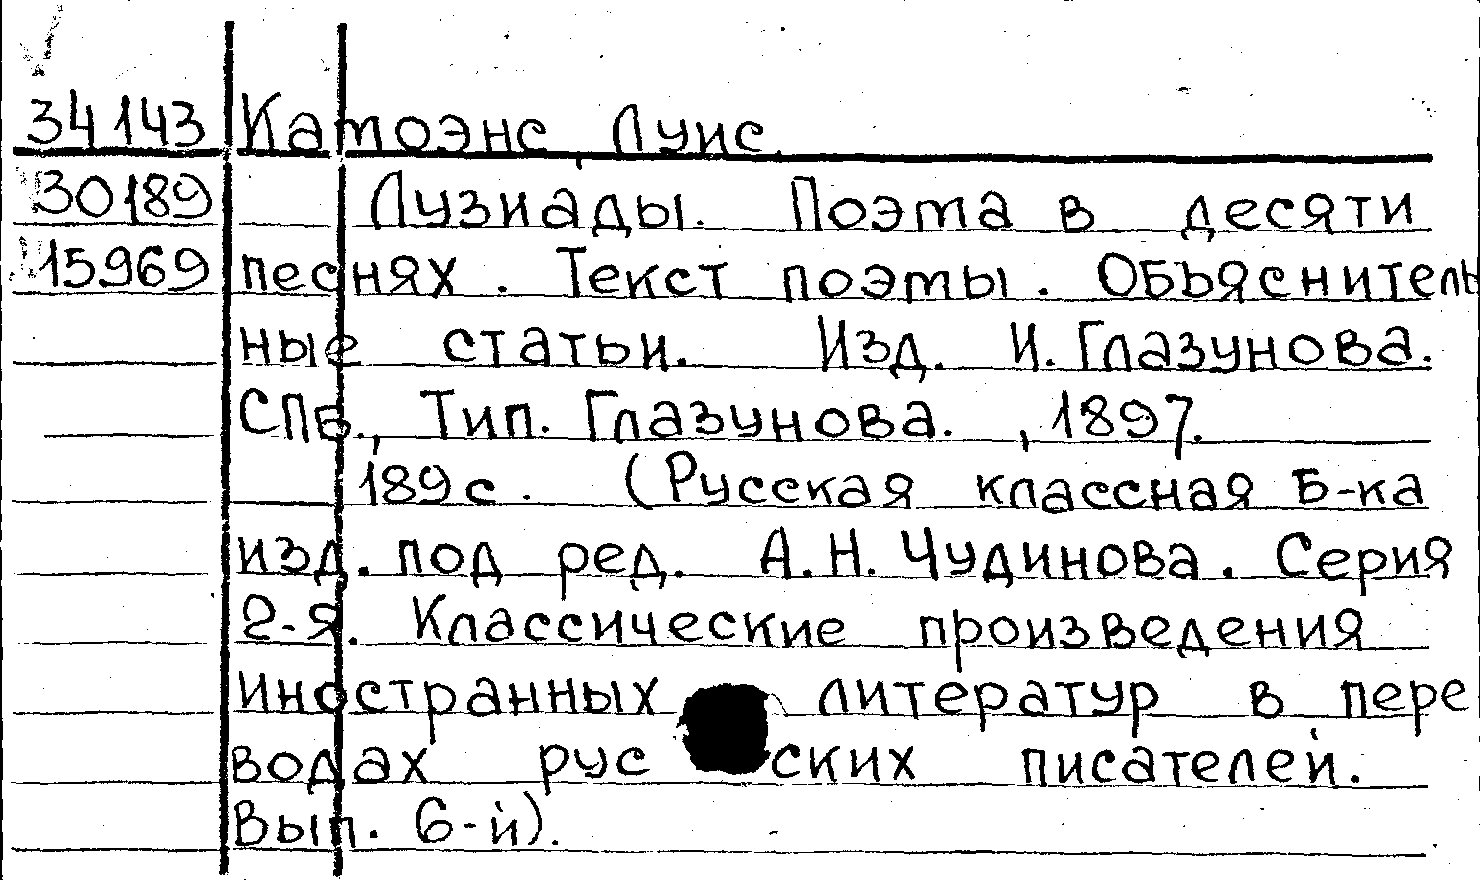 34143 Камоэнс, Луис.
30189 Лузиады. Поэма в десяти
15969 песнях. Текст поэмы. Объяснитель
ные статьи. Изд. И. Глазунова.
СПб., Тип. Глазунова. , 1897.
189 с. (Русская классная Б-ка
изд. под ред. А. Н. Чудинова. Серия
2-я. Классические произведения
иностранных литератур в пере
водах русских писателей.
Вып. 6-й).